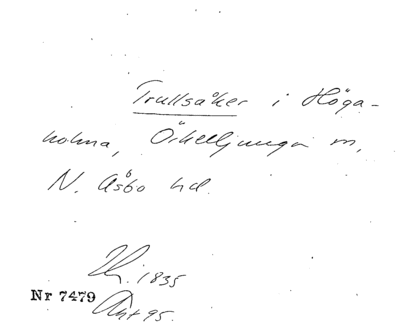 Trullsåker i Höga-
holma, Örkelljunga sn,
N. Åsbo hd.
1835
Nr 7479
Ant 95.